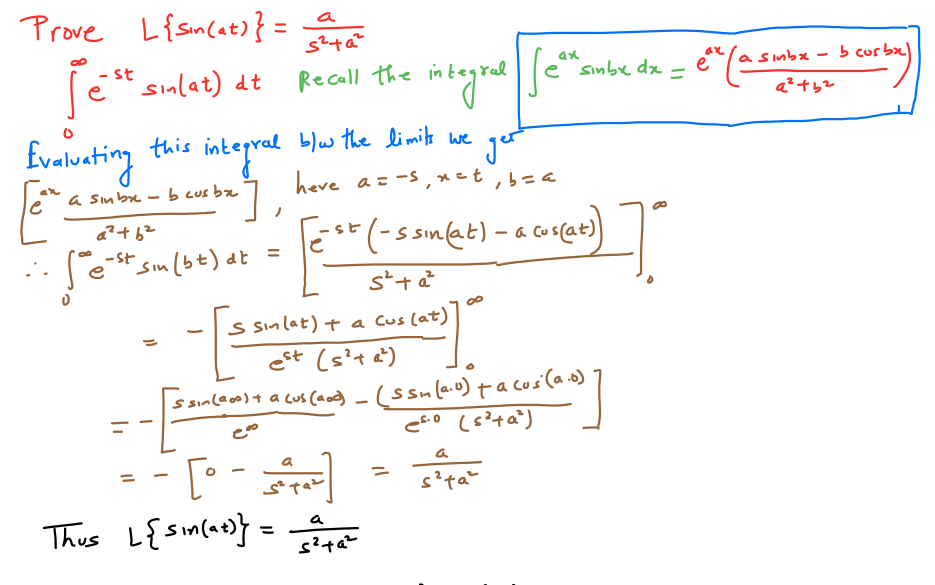 Prove L{sin(at)} = a/(s²+a²)
∫₀^∞ e^(-st) sin(at) dt Recall the integral ∫e^(ax) sinbx dx = e^(ax) ((a sinbx - b cosbx)/(a²+b²))
Evaluating this integral b/w the limits we get
[e^(ax) (a sinbx - b cosbx)/(a²+b²)], here a = -s, x = t, b = a
∴ ∫₀^∞ e^(-st) sin(bt) dt = [e^(-st) (-s sin(at) - a cos(at))/(s²+a²)]₀^∞
= -[(s sin(at) + a cos(at))/(e^(st) (s²+a²))]₀^∞
= -[(s sin(a∞) + a cos(a∞))/e^∞ - (s sin(a.0) + a cos(a.0))/(e^(s.0) (s²+a²))]
= -[0 - a/(s²+a²)] = a/(s²+a²)
Thus L{sin(at)} = a/(s²+a²)